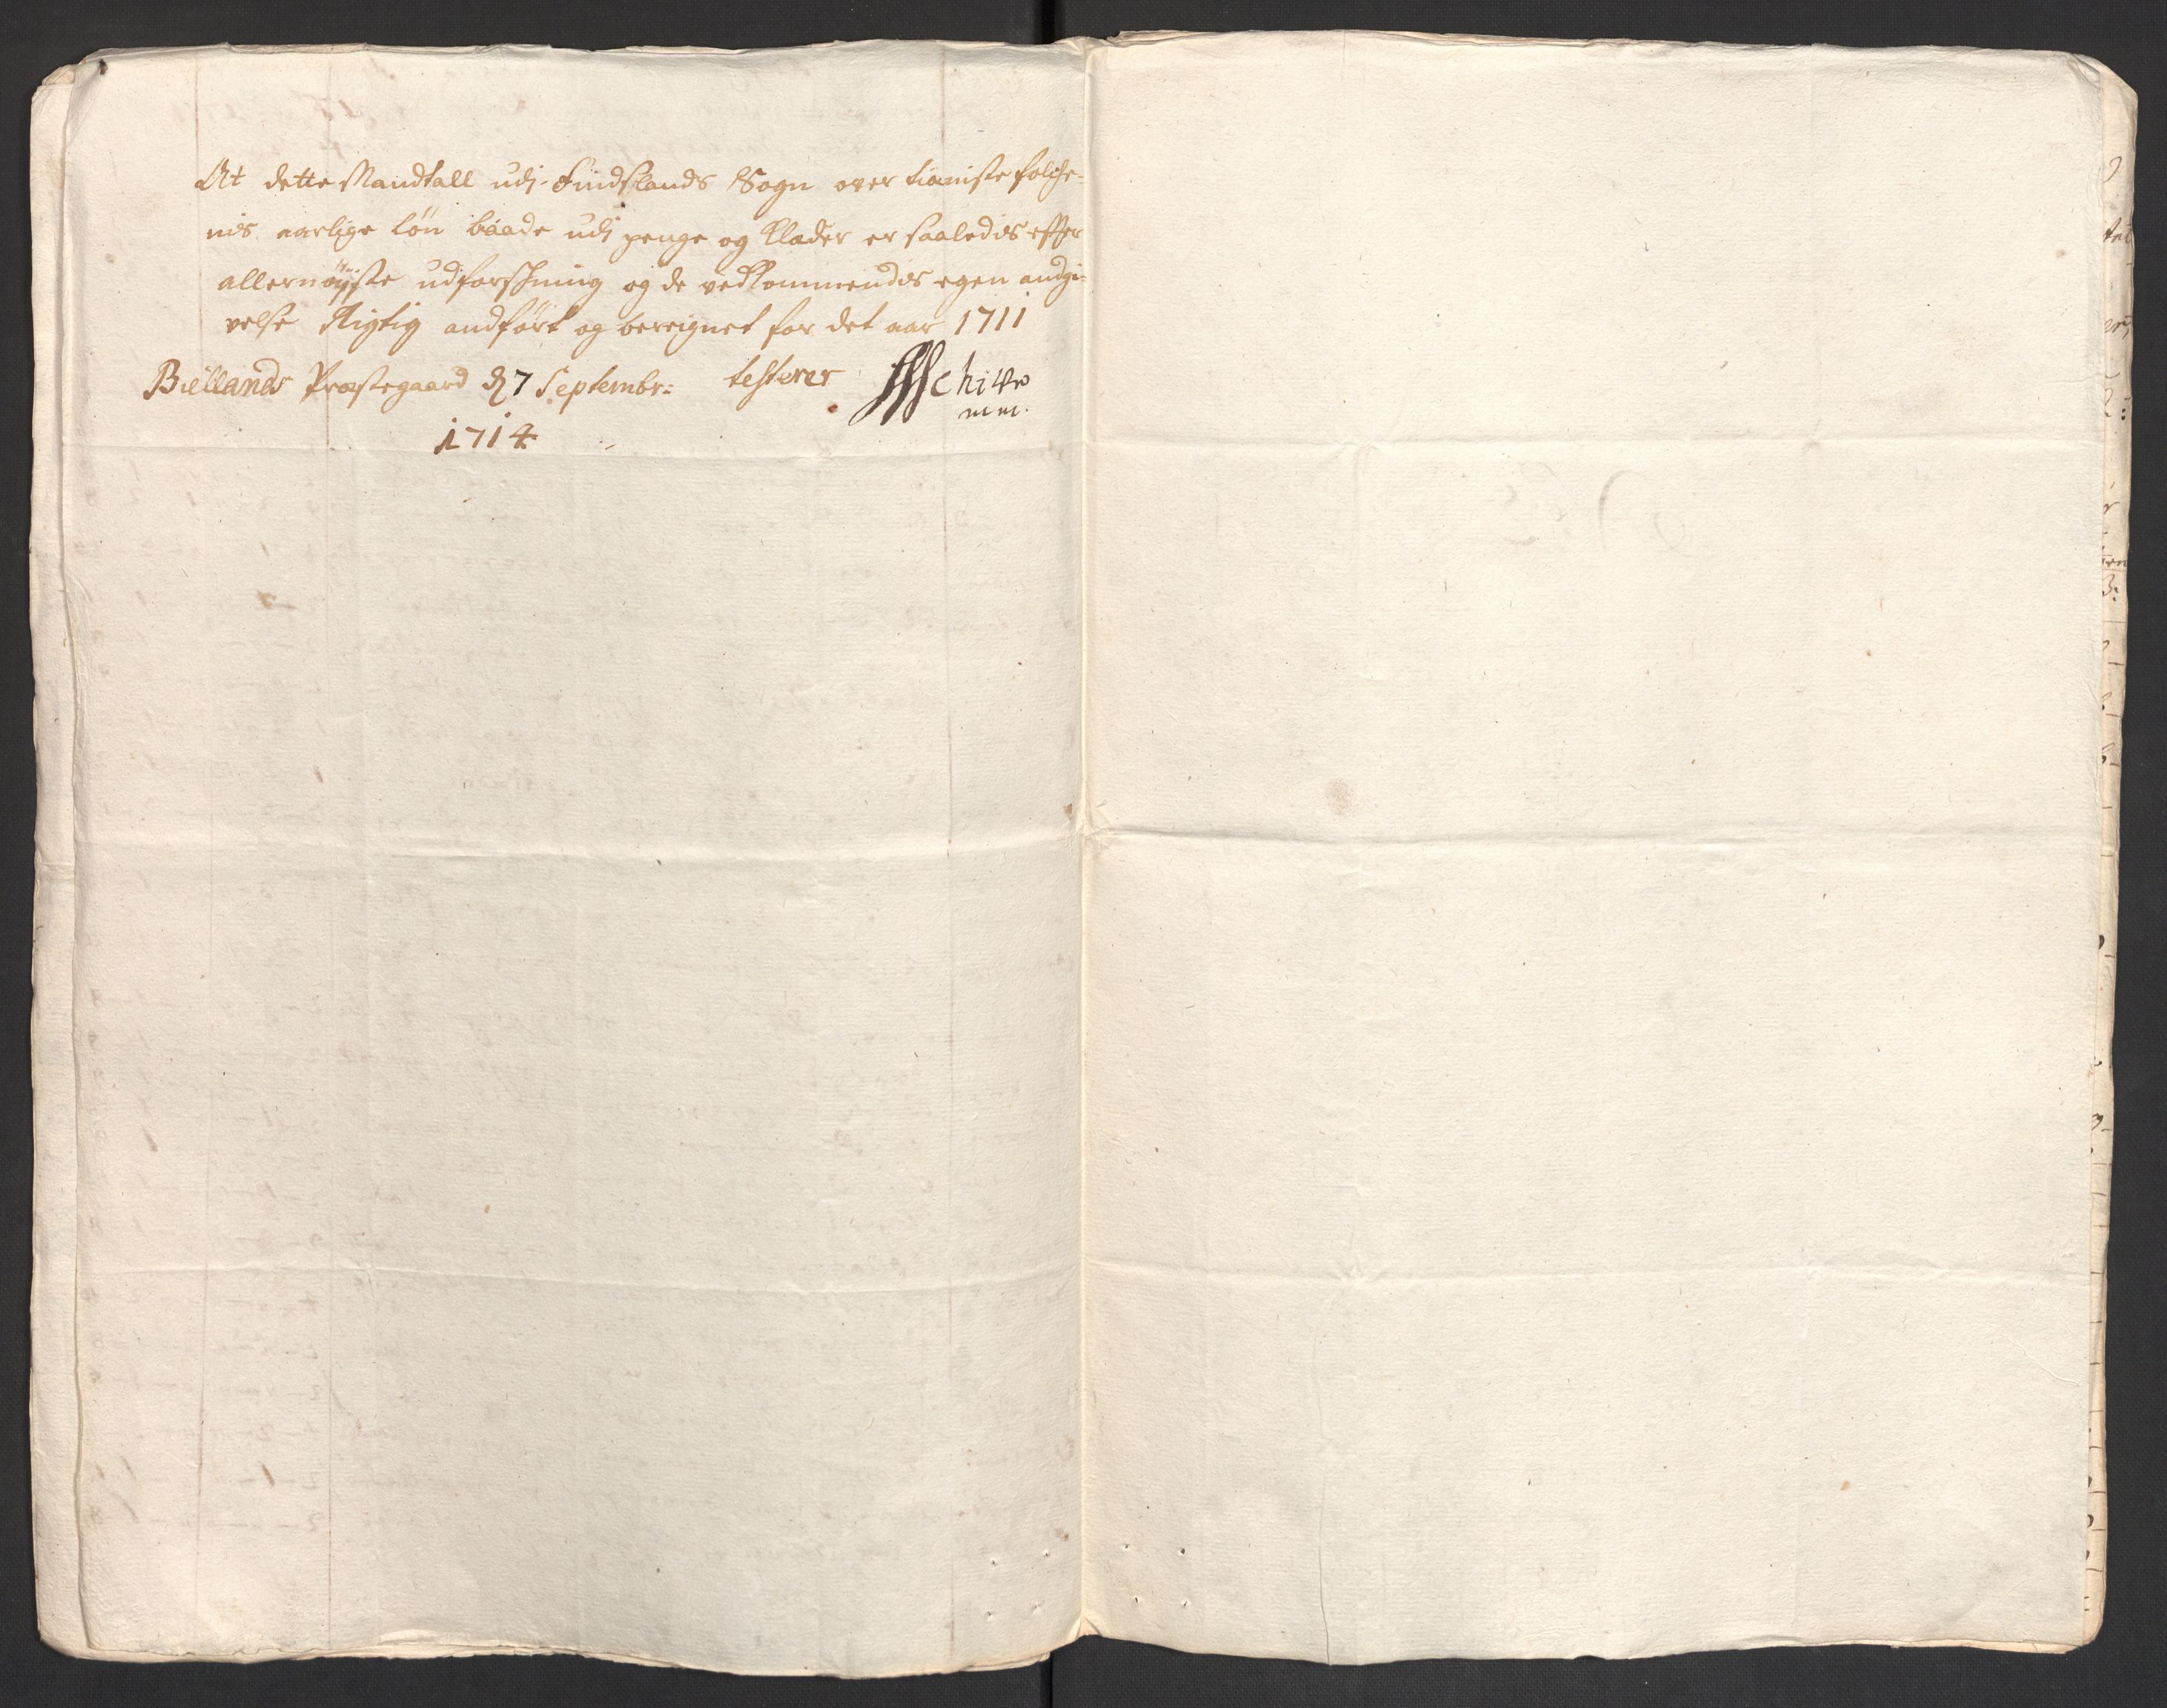 At dette Mandtall udj Findslands Sogn over tieniste folche-
nis aarlige løn baade udj penge og Klæder er saaledis efter
allernøyiste udforschning og de vedkommendes egen andgi-
velse Rigtig andført og bereignet for det aar 1711
Biellands Præstegaard d 7 Septembr: testerer
1714
mm.